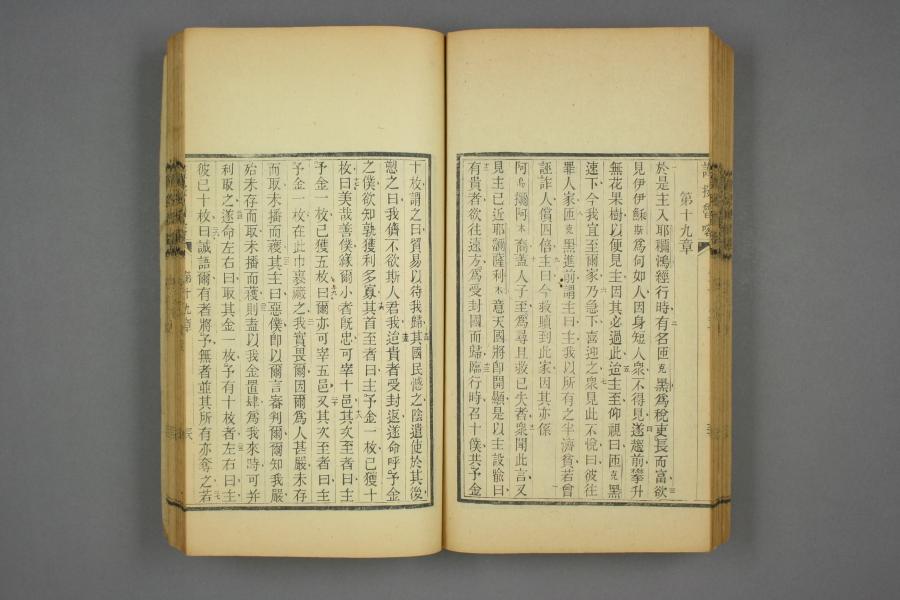 第十九章
於是主入耶穪鴻經行時有名匝克黑爲稅吏長而富欲
見伊伊穌斯爲何如人因身短人衆不得見遂趨前攀升
無花果樹以便見主因其必過此途主至仰視曰匝克黑
速下今我宜至爾家乃急下喜迎之衆見此不悅曰彼往
罪人家匝克黑進前謂主曰主我以所有之半濟貧若曾
誣詐人償四倍主曰今救贖到此家因其亦係
阿烏攔阿木裔蓋人子至爲尋且救已失者衆聞此言又
見主已近耶嚕薩利木意天國將卽開顯是以主設喻曰
有貴者欲往遠方爲受封國而歸臨行時召十僕共予金
十枚謂之曰貿易以待我歸其國民憾之陰遣使於其後
愬之曰我儕不欲斯人君我迨貴者受封返遂命呼予金
之僕欲知孰獲利多寡其首至者曰主予金一枚已獲十
枚曰美哉善僕緣爾小者旣忠可宰十邑其次至者曰主
予金一枚已獲五枚曰爾亦可宰五邑又其次至者曰主
予金一枚在此巾裹藏之我實畏爾因爾爲人甚嚴未存
而取未播而穫其主曰惡僕卽以爾言審判爾爾知我嚴
殆未存而取未播而穫則盍以我金置肆爲我來時可并
利取之遂命左右曰取其金一枚予有十枚者左右曰主
彼已十枚曰誠語爾有者將予無者並其所有亦奪之若
第十九章